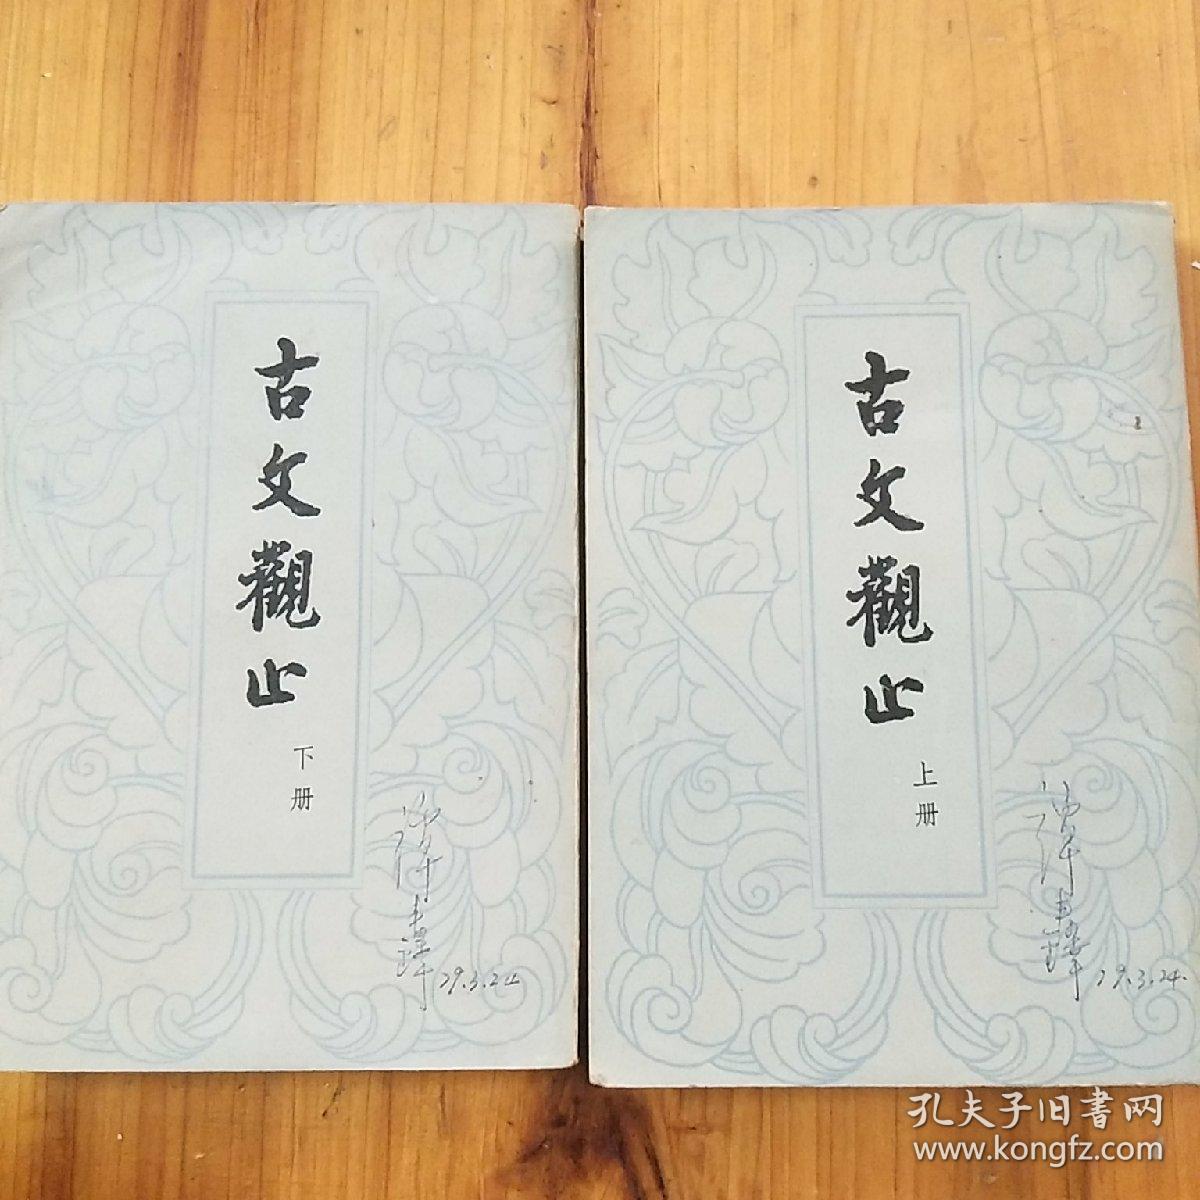 古文觀止
下册
79.3.24
古文觀止
上册
79.3.24.
孔夫子旧書网
www.kongfz.com